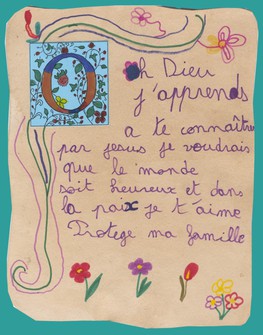 Oh Dieu
j'apprends
a te connaître
par jesus je voudrais
que le monde
soit heureux et dans
la paix je t'aime
Protege ma famille